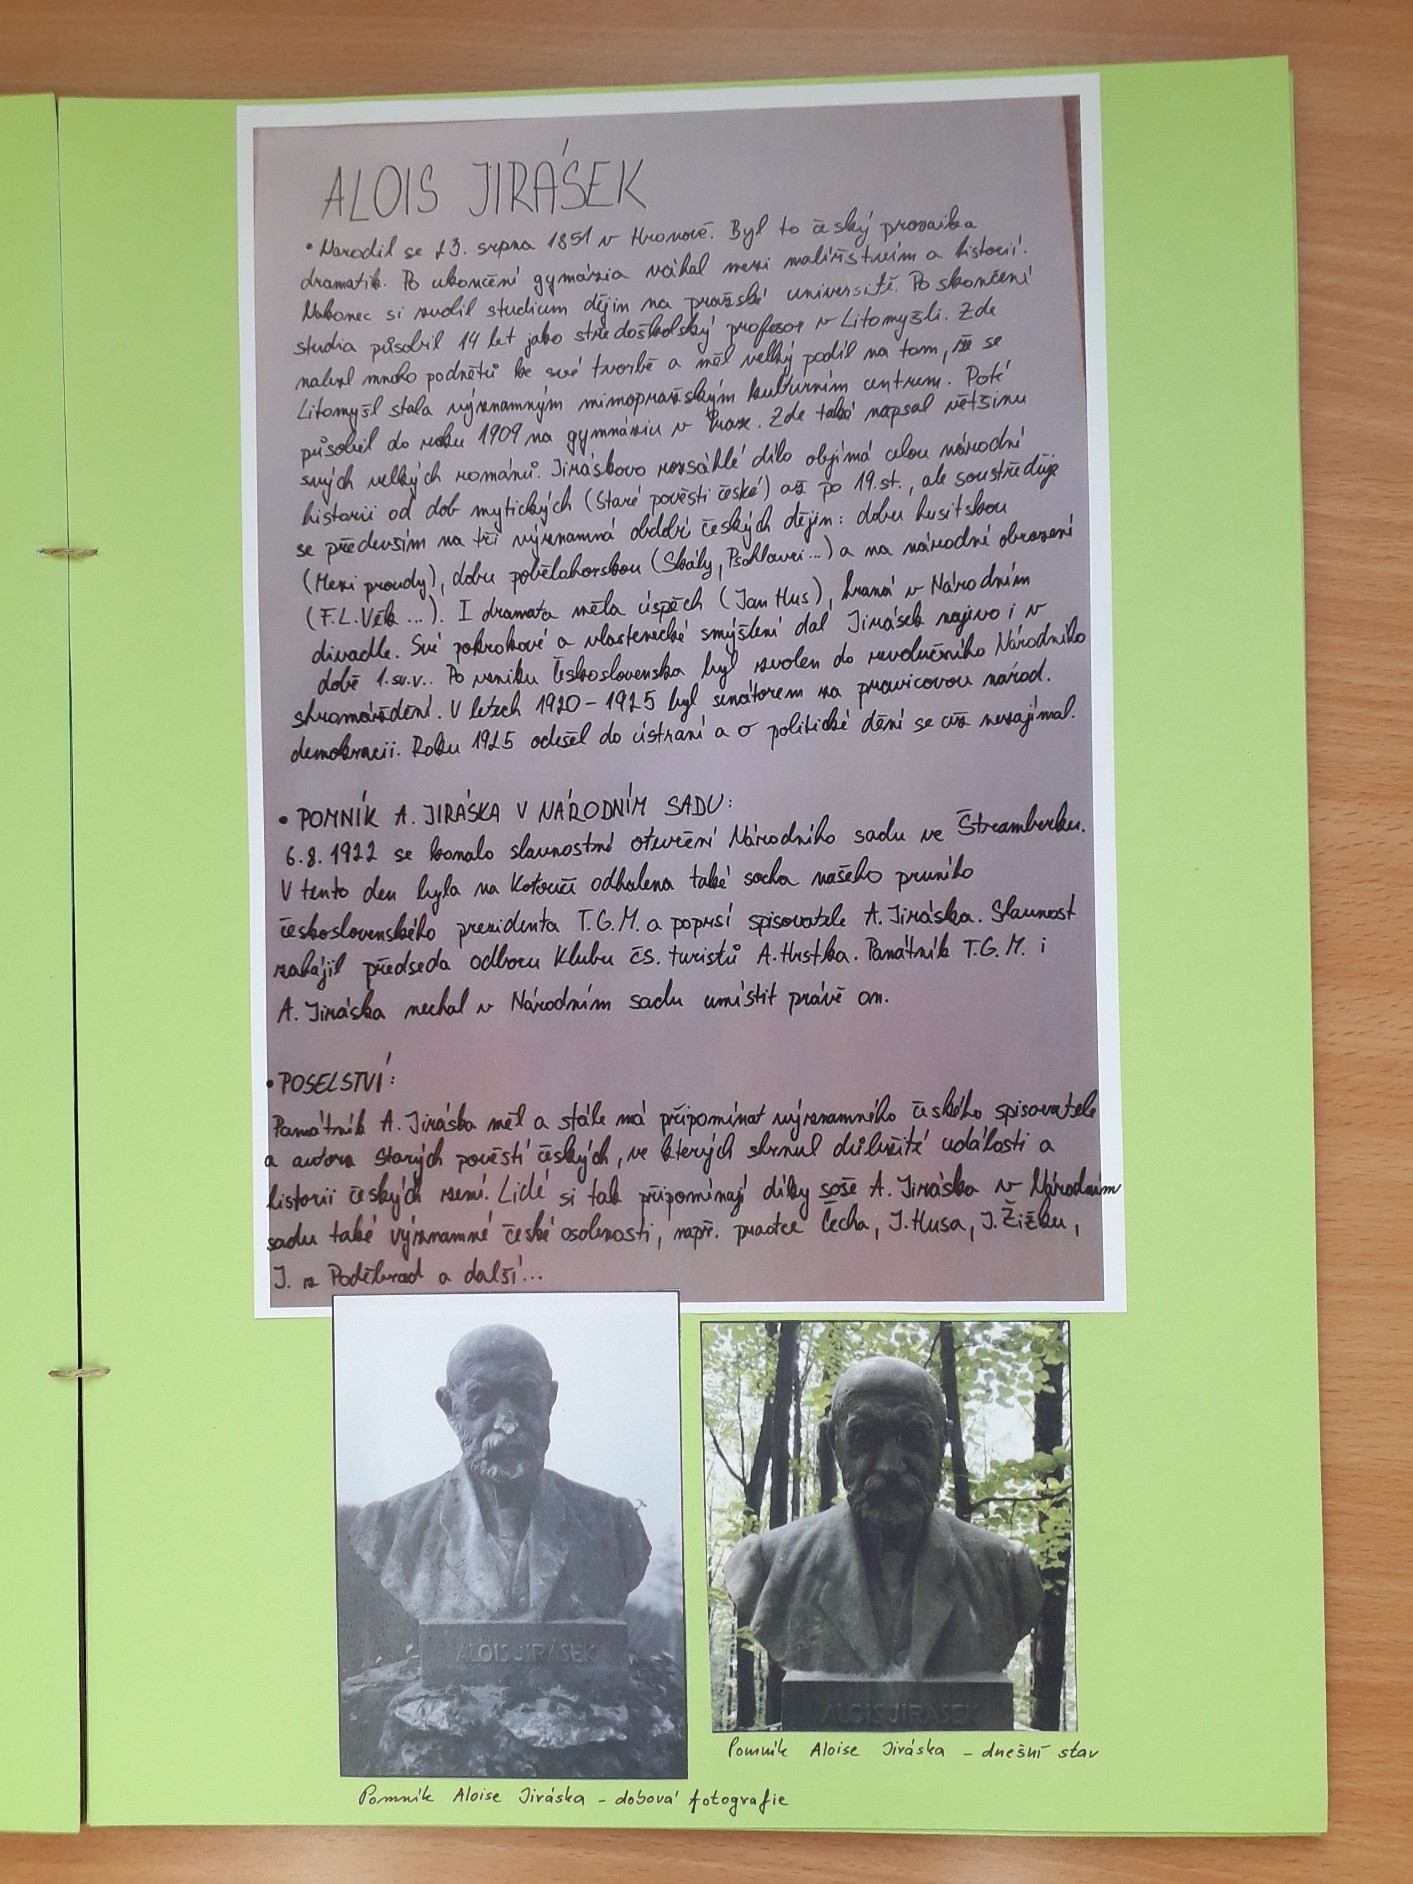 ALOIS JIRÁSEK
• Narodil se 23. srpna 1851 v Hronově. Byl to český prozaik a
dramatik. Po ukončení gymnázia váhal mezi malířstvím a historií.
Nakonec si zvolil studium dějin na pražské universitě. Po skončení
studia působil 14 let jako středoškolský profesor v Litomyšli. Zde
nabral mnoho podnětů ke své tvorbě a měl velký podíl na tom, že se
Litomyšl stala významným mimopražským kulturním centrem. Poté
působil do roku 1909 na gymnáziu v Praze. Zde také napsal většinu
svých velkých románů. Jiráskovo rozsáhlé dílo objímá celou národní
historii od dob mytických (Staré pověsti české) až po 19.st., ale soustřeďuje
se především na tři významná období českých dějin: dobu husitskou
(Mezi proudy), dobu pobělohorskou (Skály, Psohlavci...) a na národní obrození
(F.L.Věk ...). I dramata měla úspěch (Jan Hus), hraná v Národním
divadle. Své pokrokové a vlastenecké smýšlení dal Jirásek najevo i v
době 1.sv.v.. Po vzniku Československa byl zvolen do revolučního Národního
shromáždění. V letech 1920-1925 byl senátorem za pravicovou národ.
demokracii. Roku 1925 odešel do ústraní a o politické dění se už nezajímal.
• POMNÍK A. JIRÁSKA V NÁRODNÍM SADU:
6.8.1922 se konalo slavnostní otevření Národního sadu ve Štramberku.
V tento den byla na Kotouči odhalena také socha našeho prvního
československého prezidenta T.G.M. a poprsí spisovatele A. Jiráska. Slavnost
zahájil předseda odboru Klubu čs. turistů A. Hrstka. Památník T.G.M. i
A. Jiráska nechal v Národním sadu umístit právě on.
• POSELSTVÍ:
Památník A. Jiráska měl a stále má připomínat významného českého spisovatele
a autora Starých pověstí českých, ve kterých shrnul důležité události a
historii českých zemí. Lidé si tak připomínají díky soše A. Jiráska v Národním
sadu také významné české osobnosti, např. praotce Čecha, J. Husa, J. Žižku,
J. z Poděbrad a další...
ALOIS JIRÁSEK
ALOIS JIRÁSEK
Pomník Aloise Jiráska - dnešní stav
Pomník Aloise Jiráska - dobová fotografie